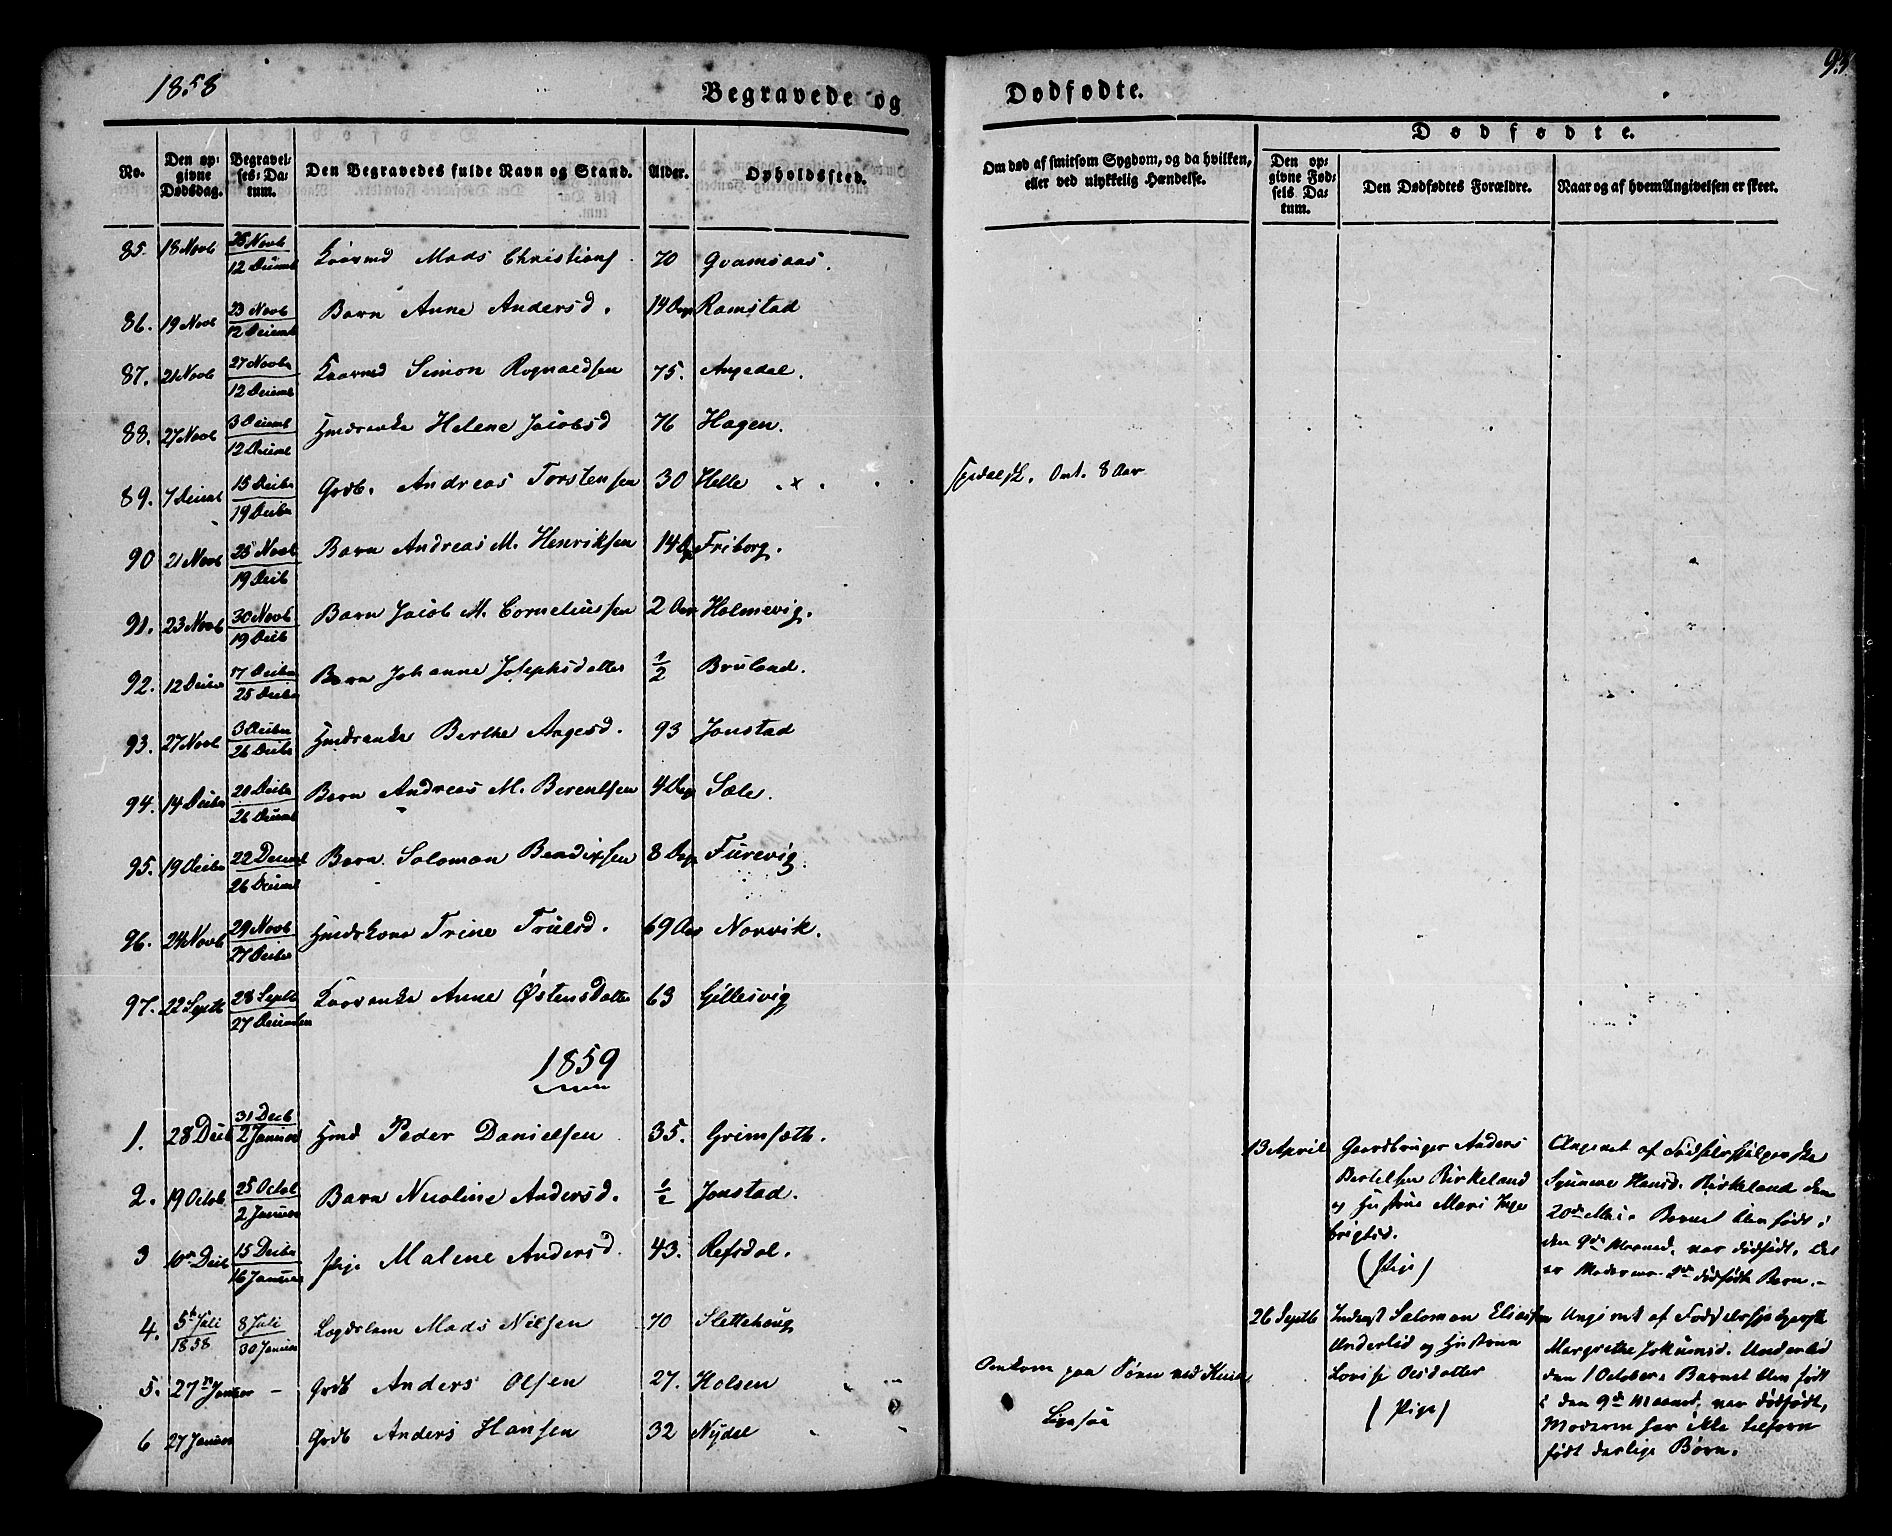 1858
Begravede og
Dødfødte.
93
No.
Den op=
givne
Dødsdag.
Begravel=
ses=Da=
tum.
Den Begravedes fulde Navn og Stand.
Alder.
Opholdssted.
Om død af smitsom Sygdom, og da hvilken,
eller ved ulykkelig Hændelse.
Dødfødte.
Den op=
givne Fød=
sels Da=
tum.
Den Dødfødtes Forældre.
Naar og af hvem Angivelsen er skeet.
85. 18 Novb 12 Decemb Mads Christians 70 Gvamsaas.
86. 19 Novb 23 Novb 12 Decemb Barn Anne Andersd. 14 Dage Ramstad
87. 21 Novb 27 Novbr 12 Decemb Simon Rognaldsen 75. Angedal.
88. 27 Novb 3 Decemb 12 Decemb Helene Jacobsd 76 Hagen.
89. 7 Decemb 15 Decbr 19 Decbr Grdb. Andreas Torstensen 30 Helle . x . Spedalsk. Ont. 8 Aar
90 21 Novb 25 Novb 19 Decb Barn Andreas M. Henriksen 14 Dg Friborg.
91. 23 Novb 30 Novb 19 Decb Barn Jacob M. Corneliussen 2 Aar Holmevig.
92. 12 Decbr 17 Decbr 25 Decbr Barn Johanne Josephsdatter 1/2 Bruland.
93. 27 Novb 3 Decbr 26 Decbr Berthe Aagesd. 93 Jonstad
94. 14 Decbr 20 Decbr 26 Decemb Barn Andreas M. Berentsen 4 Dage Sæle.
95. 19 Decbr 22 Decemb 26 Decemb Barn Salomon Bendixsen 8 Dage Furevig.
96. 24 Novb 29 Novb 27 Decbr Huuskone Trine Trulsd. 69 Aar Norvik.
97. 22 Septb 28 Septb 27 Decemben Anne Østensdatter 63 Gillesvig
1859
1. 28 Decb 31 Decb 2 Januar Hmd Peder Danielsen 35. Grimsæth.
2. 19 Octob 25 Octob 2 Januar Barn Nicoline Andersd. 1/2 Jonstad.
3 10 Decb 15 Decbr 16 Januar Pige Malene Andersd. 43. Refsdal.
4. 5te Juli 1858 8 Juli 30 Januar Lægdslem Mads Nilsen 70 Slettehaug
5. 27 Januar - Grdb Anders Olsen 27. Holsen Omkom paa Søen ved
6 27 Januar Grdb Anders Hansen 32 Nydal Ligesaa
13 April
Gaardbruger Anders
Bertelsen Birkeland
og Hustrue Mari Inge
brigtsd.
(Pige)
Angivet af Fødselshjælperske
Synneve Hansd. Birkeland den
20de Mai. Barnet blev født i
den 9de Maaned, var dødfødt. Det
er Moderens 2det dødfødte Barn. -
26 Septb
Inderst Salomon Eliassen
Underlid og Hustrue
Lovise Olsdatter
(Pige)
Angivet af Fødselshjelperske
Margrethe Jokumsd. Underlid
den 1 October. Barnet blev født
i den 9de Maaned, var dødfødt,
Moderen har ikke tilforn
født døde Børn.